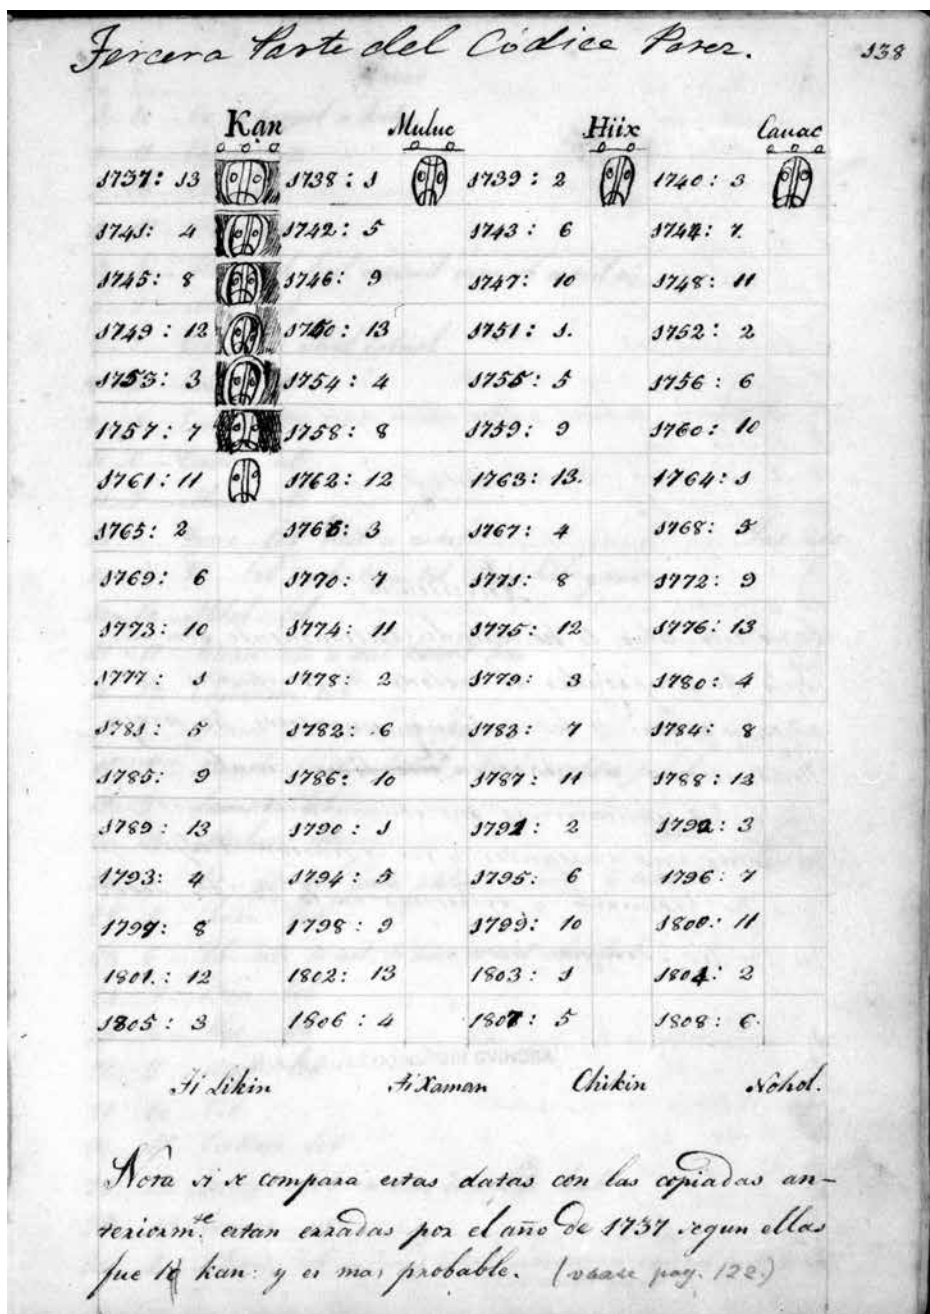 Tercera Parte del Códice Perez. 138
Kan Muluc Hiix Cauac
1737: 13 1738: 1 1739: 2 1740: 3
1741: 4 1742: 5 1743: 6 1744: 7.
1745: 8 1746: 9 1747: 10 1748: 11
1749: 12 1750: 13 1751: 1. 1752: 2
1753: 3 1754: 4 1755: 5 1756: 6
1757: 7 1758: 8 1759: 9 1760: 10
1761: 11 1762: 12 1763: 13. 1764: 1
1765: 2 1766: 3 1767: 4 1768: 5
1769: 6 1770: 7 1771: 8 1772: 9
1773: 10 1774: 11 1775: 12 1776: 13
1777: 1 1778: 2 1779: 3 1780: 4
1781: 5 1782: 6 1783: 7 1784: 8
1785: 9 1786: 10 1787: 11 1788: 12
1789: 13 1790: 1 1791: 2 1792: 3
1793: 4 1794: 5 1795: 6 1796: 7
1797: 8 1798: 9 1799: 10 1800: 11
1801.: 12 1802: 13 1803: 1 1804: 2
1805: 3 1806: 4 1807: 5 1808: 6.
Ti Likin Ti Xaman Chikin Nohol.
Nota si se compara estas datas con las copiadas an-
teriorm.te estan erradas por el año de 1737 segun ellas
fue kan: y es mas probable. (vease pag. 122.)